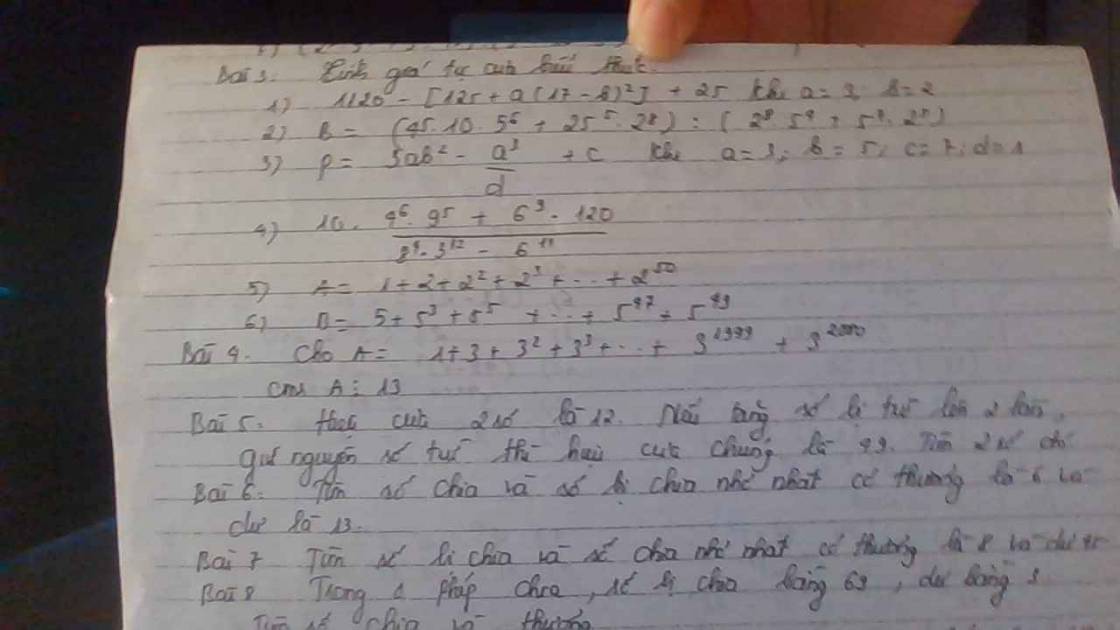 Bài 3. Tính giá trị của biểu thức.
1) 1120 - [125 + a(17 - b)²] + 25 khi a = 3, b = 2
2) B = (45. 10. 5⁶ + 25⁵. 2⁸) : ( 2⁸ 5⁴ + 5⁷. 2⁵)
3) P = 3ab² - a³/d + c khi a = 3; b = 5; c = 7; d = 1
4) 10. (4⁶. 9⁵ + 6⁹. 120)/(8⁴. 3¹² - 6¹¹)
5) A = 1 + 2 + 2² + 2³ + ... + 2⁵⁰
6) B = 5 + 5³ + 5⁵ + ... + 5⁹⁷ + 5⁹⁹
Bài 4. Cho A = 1 + 3 + 3² + 3³ + ... + 3¹⁹⁹⁹ + 3²⁰⁰⁰
cmr A ⋮ 13
Bài 5. Hiệu của 2 số là 12. Nếu tăng số bị trừ lên 2 lần,
giữ nguyên số trừ thì hiệu của chúng là 49. Tìm 2 số đó
Bài 6. Tìm số chia và số bị chia nhỏ nhất có thương là 6 và
dư là 13.
Bài 7 Tìm số bị chia và số chia nhỏ nhất có thương là 8 và dư
Bài 8 Trong 1 phép chia, số bị chia bằng 69, dư bằng 3
Tìm số chia và thương